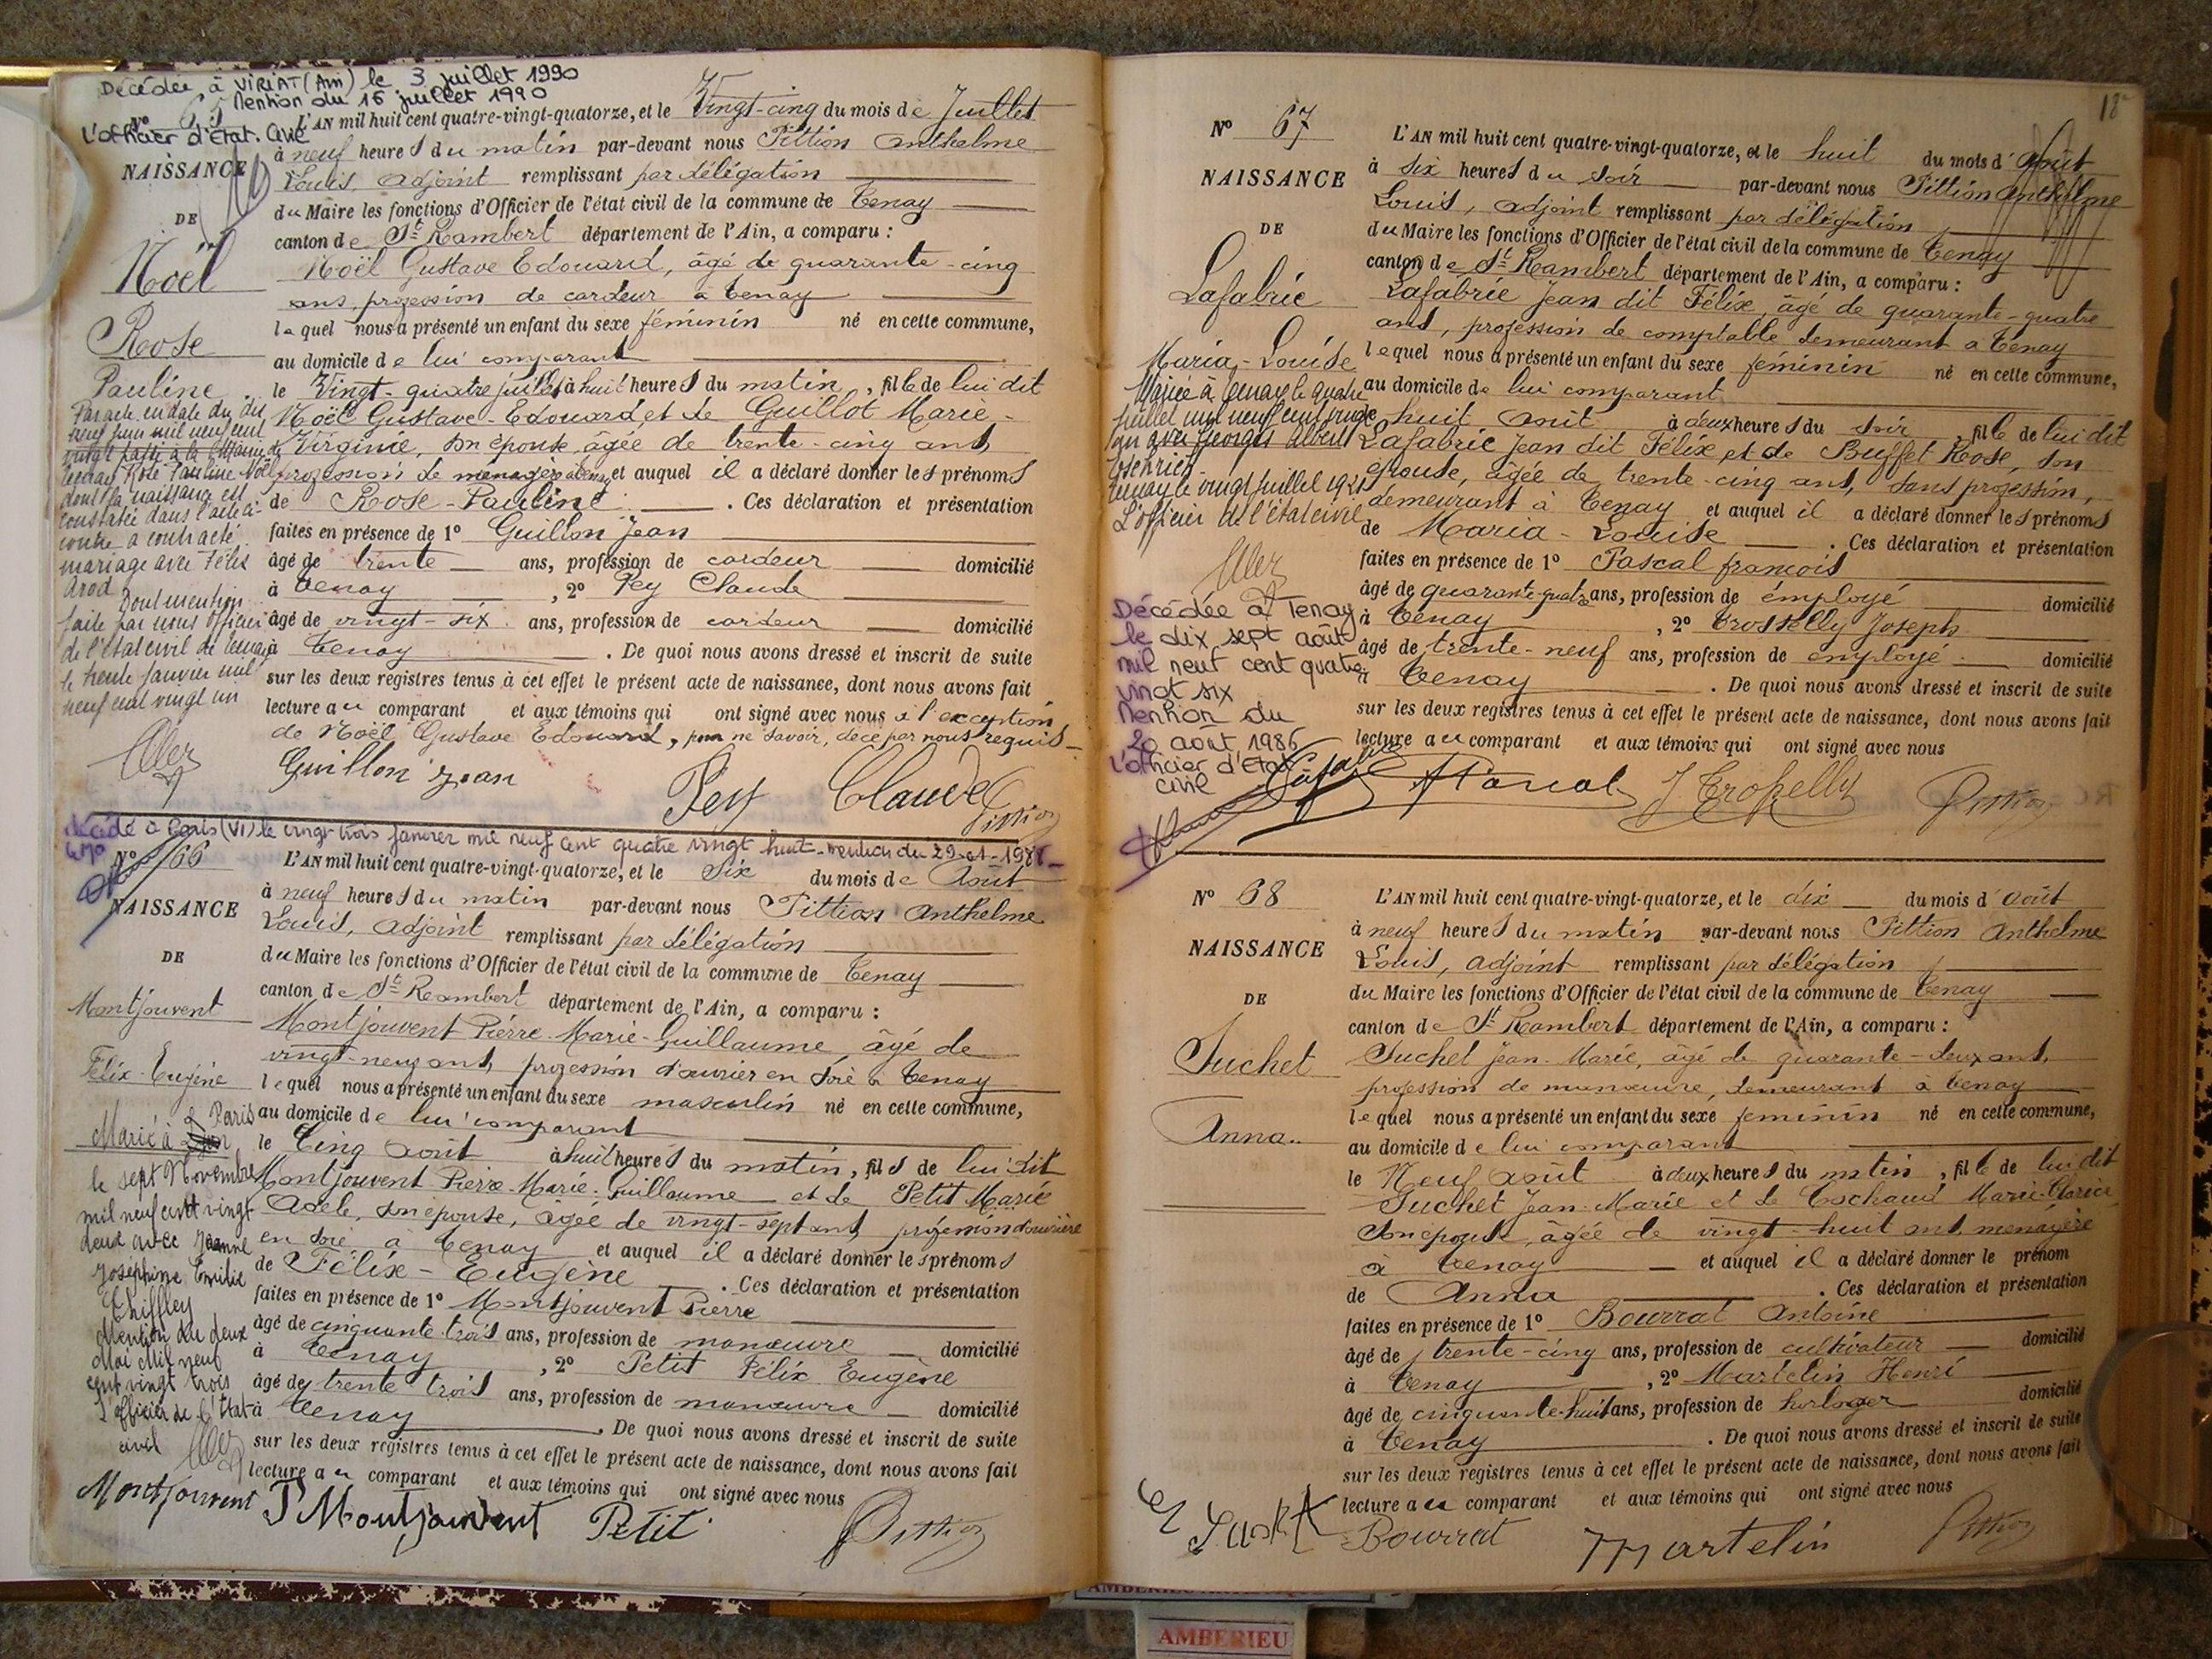 Décédée à VIRIAT (Ain) le 3 juillet 1990
Mention du 16 juillet 1990
L'officier d'Etat. Civil
Nº 65
NAISSANCE
DE
Noël
Rose
Pauline
Par acte en date du dix
neuf juin mil neuf cent
vingt passé à la Mairie de
Tenay Rose Pauline Noël
dont la naissance est
constatée dans l'acte ci-
contre a contracté
mariage avec Félix
Arod
Dont mention
faite par nous officier
de l'état civil de Tenay
le trente janvier mil
neuf cent vingt un
L'AN mil huit cent quatre-vingt-quatorze, et le Vingt-cinq du mois de Juillet
à neuf heures du matin par-devant nous Pittion Anthelme
Louis, adjoint remplissant par délégation
du Maire les fonctions d'Officier de l'état civil de la commune de Tenay
canton de St Rambert département de l'Ain, a comparu :
Noël Gustave Edouard, âgé de quarante-cinq
ans, profession de cardeur à Tenay
lequel nous a présenté un enfant du sexe féminin né en cette commune,
au domicile de lui comparant
le Vingt-quatre juillet à huit heures du matin, fille de lui dit
Noël Gustave-Edouard et de Guillot Marie-
Virginie, son épouse, âgée de trente-cinq ans,
profession de ménagère à Tenay et auquel il a déclaré donner les prénoms
de Rose-Pauline. Ces déclaration et présentation
faites en présence de 1º Guillon Jean
âgé de trente ans, profession de cardeur domicilié
à Tenay, 2º Pey Claude
âgé de vingt-six ans, profession de cardeur domicilié
à Tenay. De quoi nous avons dressé et inscrit de suite
sur les deux registres tenus à cet effet le présent acte de naissance, dont nous avons fait
lecture au comparant et aux témoins qui ont signé avec nous à l'exception
de Noël Gustave Edouard, pour ne savoir, de ce par nous requis
Guillon jean Pey Claude Pittion
Décédé à Paris (VI) le vingt-trois janvier mil neuf cent quatre vingt huit - mention du 29-01-1988
Nº 66
NAISSANCE
DE
Montjouvent
Félix-Eugène
Marié à Paris
le sept Novembre
mil neuf cent vingt
deux avec Jeanne
Joséphine Emilie
Chiffley
Mention du deux
Mai Mil neuf
cent vingt trois
L'officier de l'Etat
civil
L'AN mil huit cent quatre-vingt-quatorze, et le Six du mois de Août
à neuf heures du matin par-devant nous Pittion Anthelme
Louis, adjoint remplissant par délégation
du Maire les fonctions d'Officier de l'état civil de la commune de Tenay
canton de St Rambert département de l'Ain, a comparu :
Montjouvent Pierre-Marie-Guillaume âgé de
vingt-neuf ans, profession d'ouvrier en soie à Tenay
lequel nous a présenté un enfant du sexe masculin né en cette commune,
au domicile de lui comparant
le Cinq août à huit heures du matin, fils de lui dit
Montjouvent Pierre-Marie-Guillaume et de Petit Marie
Adèle, son épouse, âgée de vingt-sept ans, profession d'ouvrière
en soie à Tenay et auquel il a déclaré donner les prénoms
de Félix-Eugène. Ces déclaration et présentation
faites en présence de 1º Montjouvent Pierre
âgé de cinquante-trois ans, profession de manœuvre domicilié
à Tenay, 2º Petit Félix Eugène
âgé de trente trois ans, profession de manœuvre domicilié
à Tenay. De quoi nous avons dressé et inscrit de suite
sur les deux registres tenus à cet effet le présent acte de naissance, dont nous avons fait
lecture au comparant et aux témoins qui ont signé avec nous
Montjouvent P Montjouvent Petit Pittion
18
Nº 67
NAISSANCE
DE
Lafabrie
Maria-Louise
Mariée à Tenay le quatre
juillet mil neuf cent vingt
un avec Georges Albert
Tenay le vingt juillet 1921
L'officier de l'état civil
Décédée à Tenay
le dix sept août
mil neuf cent quatre
vingt six
Mention du
20 août 1986
L'officier d'Etat
civil
L'AN mil huit cent quatre-vingt-quatorze, et le huit du mois d'Août
à six heures du soir par-devant nous Pittion Anthelme
Louis, adjoint remplissant par délégation
du Maire les fonctions d'Officier de l'état civil de la commune de Tenay
canton de St Rambert département de l'Ain, a comparu :
Lafabrie Jean dit Félix, âgé de quarante-quatre
ans, profession de comptable demeurant à Tenay
lequel nous a présenté un enfant du sexe féminin né en cette commune,
au domicile de lui comparant
le huit août à deux heures du soir, fille de lui dit
Lafabrie Jean dit Félix et de Buffet Rose, son
épouse, âgée de trente-cinq ans, sans profession,
demeurant à Tenay et auquel il a déclaré donner les prénoms
de Maria-Louise. Ces déclaration et présentation
faites en présence de 1º Pascal françois
âgé de quarante quatre ans, profession de employé domicilié
à Tenay, 2º Trosselly Joseph
âgé de trente-neuf ans, profession de employé domicilié
à Tenay. De quoi nous avons dressé et inscrit de suite
sur les deux registres tenus à cet effet le présent acte de naissance, dont nous avons fait
lecture au comparant et aux témoins qui ont signé avec nous
Lafabrie Pascal J Trosselly Pittion
Nº 68
NAISSANCE
DE
Suchet
Anna
L'AN mil huit cent quatre-vingt-quatorze, et le dix du mois d'août
à neuf heures du matin par-devant nous Pittion Anthelme
Louis, adjoint remplissant par délégation
du Maire les fonctions d'Officier de l'état civil de la commune de Tenay
canton de St Rambert département de l'Ain, a comparu :
Suchet Jean-Marie, âgé de quarante-deux ans,
profession de manœuvre, demeurant à Tenay
lequel nous a présenté un enfant du sexe féminin né en cette commune,
au domicile de lui comparant
le Neuf août à deux heures du matin, fille de lui dit
Suchet Jean-Marie et de Cochaud Marie-Clarice
son épouse, âgée de vingt-huit ans, ménagère
à Tenay et auquel il a déclaré donner le prénom
de Anna. Ces déclaration et présentation
faites en présence de 1º Bourrat Antoine
âgé de trente-cinq ans, profession de cultivateur domicilié
à Tenay, 2º Martelin Henri
âgé de cinquante-huit ans, profession de horloger domicilié
à Tenay. De quoi nous avons dressé et inscrit de suite
sur les deux registres tenus à cet effet le présent acte de naissance, dont nous avons fait
lecture au comparant et aux témoins qui ont signé avec nous
Bourrat Martelin Pittion
AMBERIEU